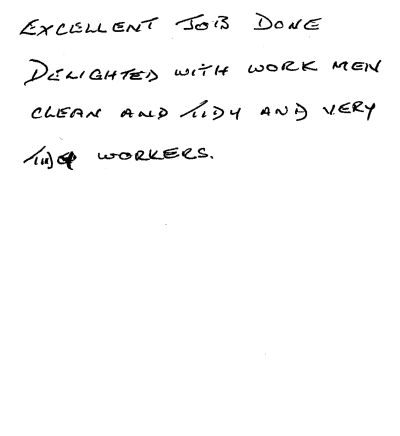 EXCELLENT JOB DONE
DELIGHTED WITH WORK MEN
CLEAN AND TIDY AND VERY
WORKERS.